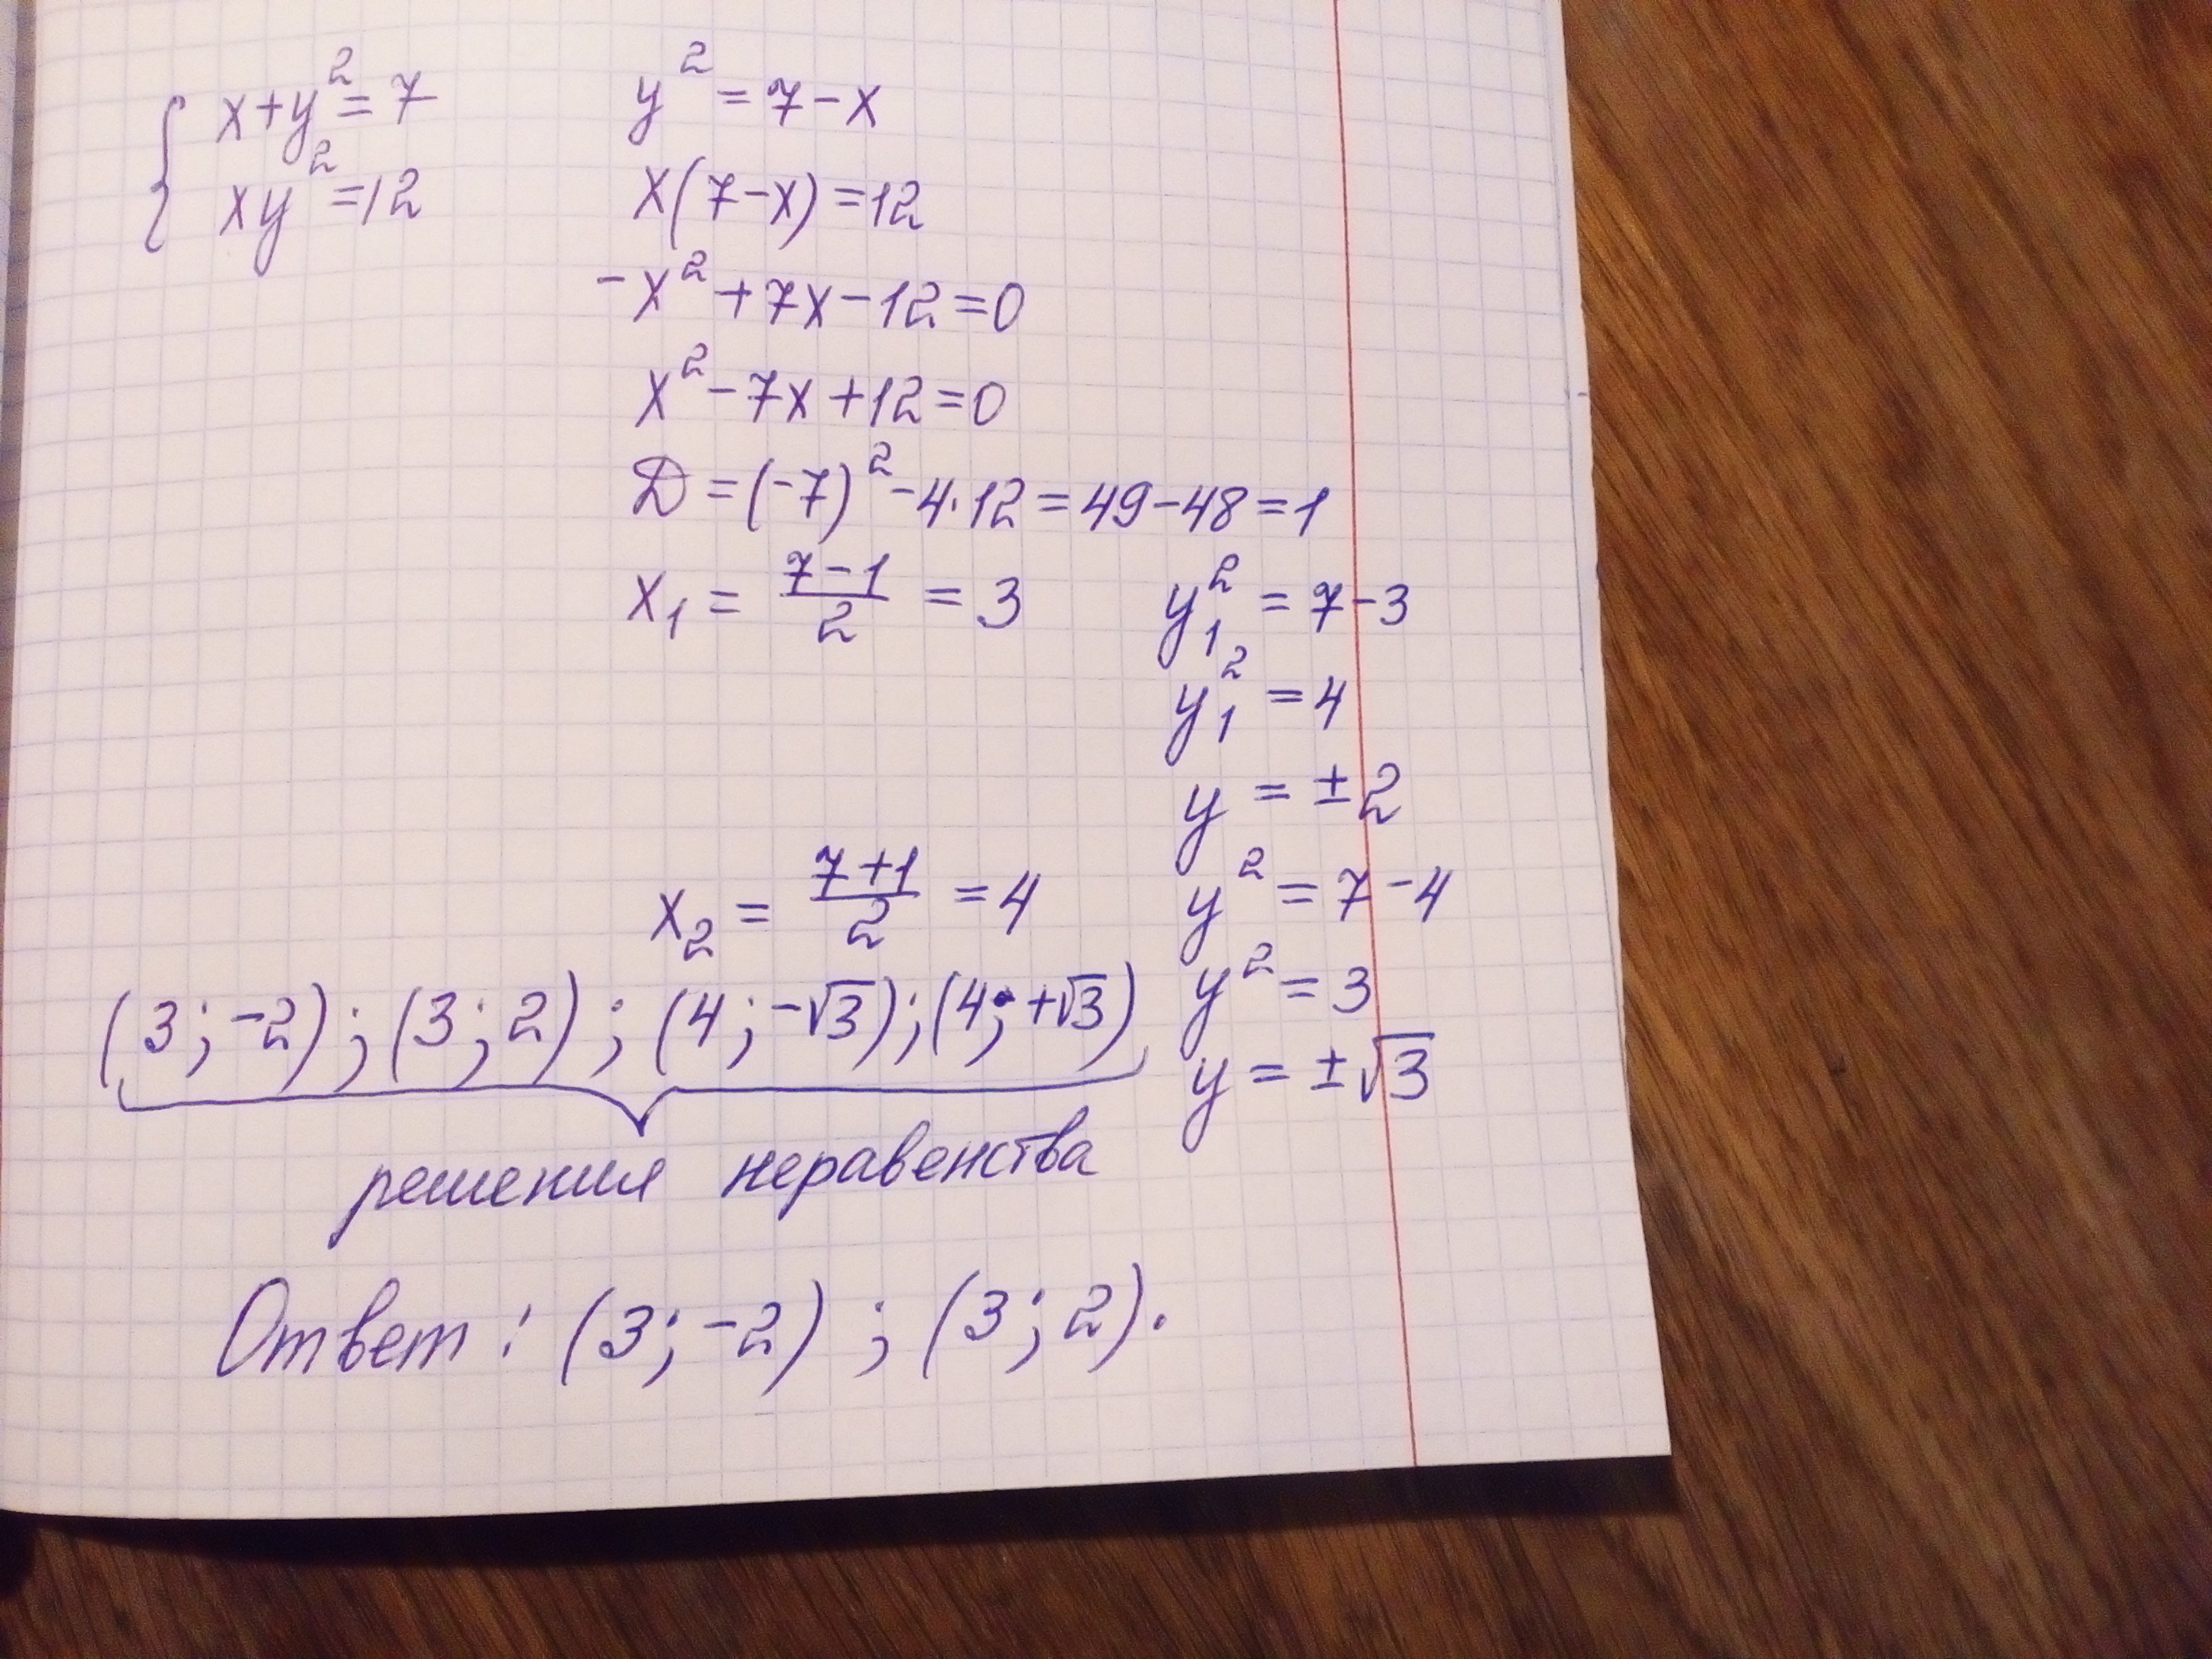 { x+y²=7
xy²=12
y²=7-x
x(7-x)=12
-x²+7x-12=0
x²-7x+12=0
D=(-7)²-4·12=49-48=1
x₁ = (7-1)/2 = 3
y₁² = 7-3
y₁² = 4
y = ±2
x₂ = (7+1)/2 = 4
y² = 7-4
y² = 3
y = ±√3
(3;-2);(3;2);(4;-√3);(4;+√3)
решения неравенства
Ответ: (3;-2);(3;2).